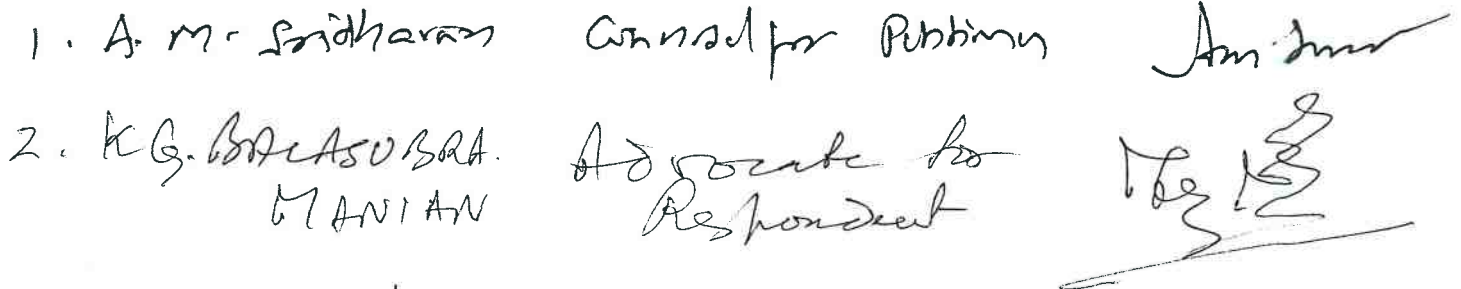 1. A. M. Sridharan Counsel for Petitioner
2. K G. BALASUBRA. Advocate for
MANIAN Respondent